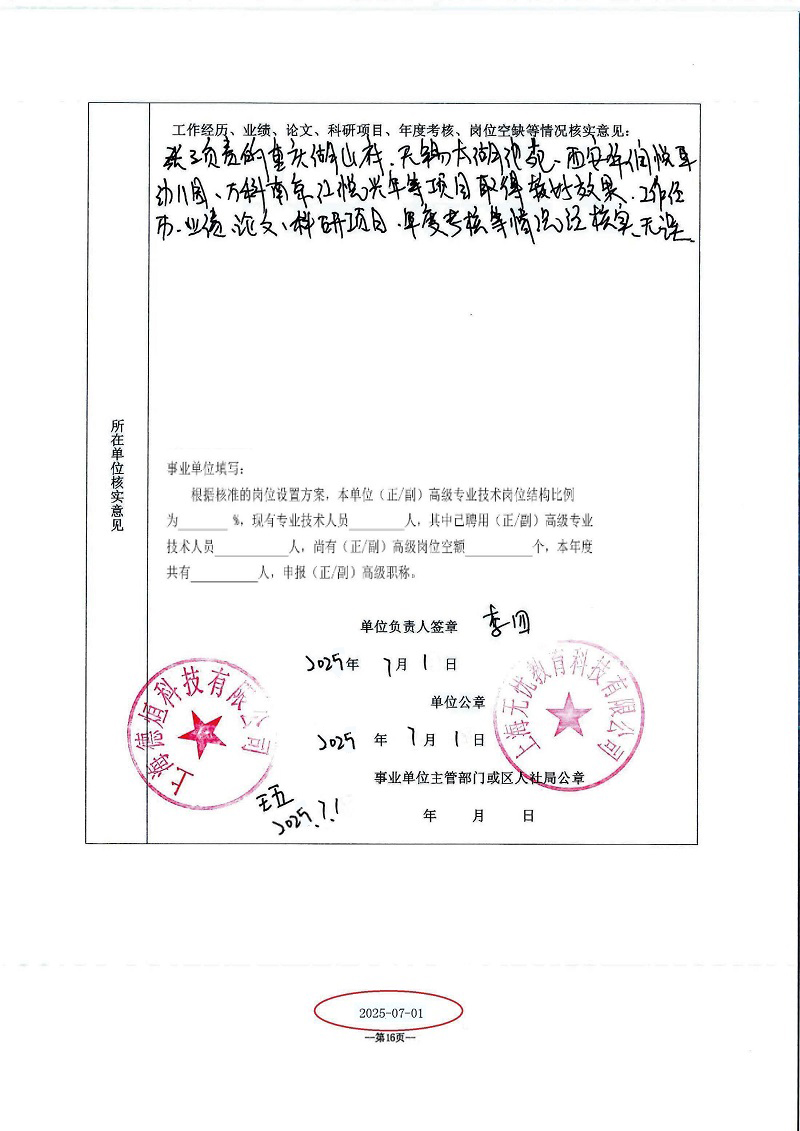 工作经历、业绩、论文、科研项目、年度考核、岗位空缺等情况核实意见：
张三负责的重庆湖山村、无锡太湖 西安华润悦府
幼儿园、万科南京江悦兴年等项目取得较好效果、工作经
历、业绩、论文、科研项目、年度考核等情况经核实、无误
所在单位核实意见
事业单位填写：
根据核准的岗位设置方案，本单位（正/副）高级专业技术岗位结构比例
为______ %，现有专业技术人员______人，其中已聘用（正/副）高级专业
技术人员______人，尚有（正/副）高级岗位空额______个，本年度
共有______人，申报（正/副）高级职称。
单位负责人签章 李四
2025年 7月 1日
单位公章
2025 年 7月 1日
事业单位主管部门或区人社局公章
年 月 日
上海德垣科技有限公司
上海无忧教育科技有限公司
王五
2025.7.1
2025-07-01
—第16页—